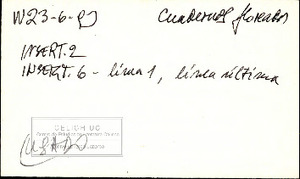 W23-6-PJ Cuadernos florales
INSERT. 2
INSERT. 6 - línea 1, línea última
CEDICH UC
USADO